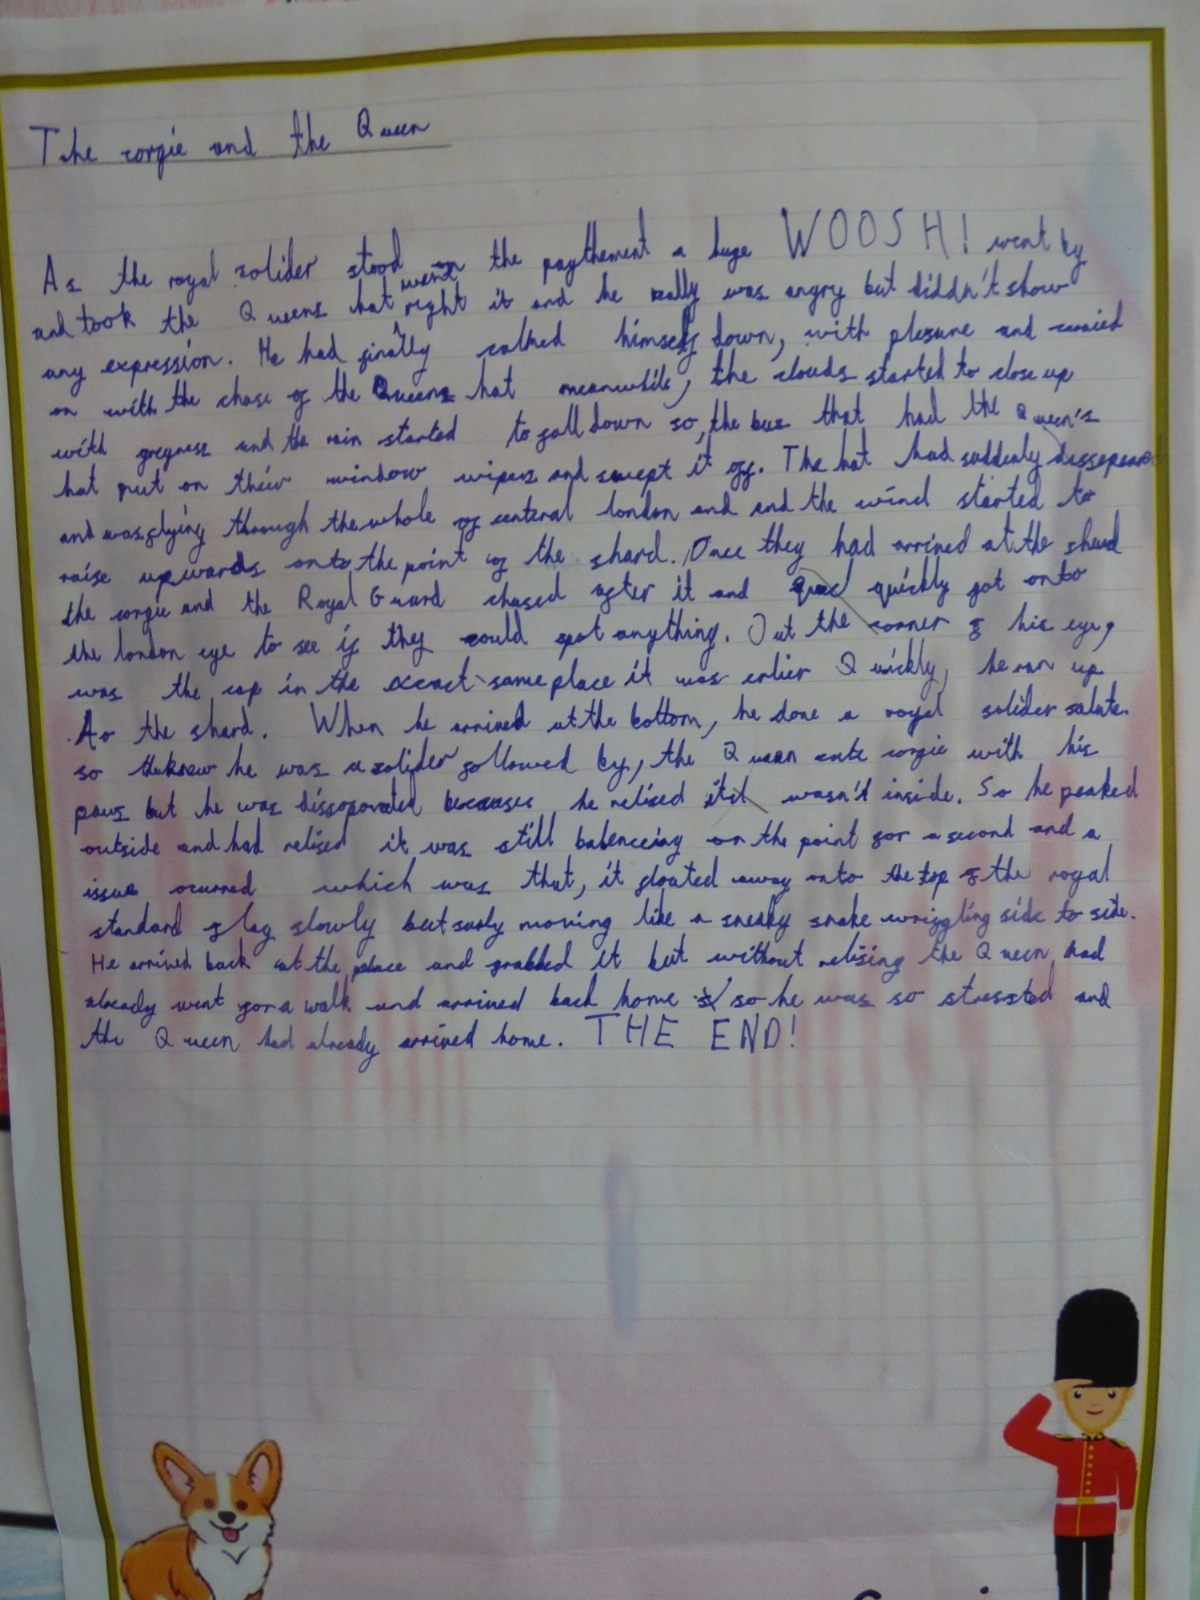 The corgie and the Queen
As the royal solider stood on the paythement a huge WOOSH! went by
and took the Queens hat went right it and he really was angry but diddn't show
any expression. He had finally calmed himself down, with plesure and carried
on with the chase of the Queens hat meanwhile, the clouds started to close up
with greyness and the rain started to fall down so, the bus that had the Queen's
hat put on their window wipers and swept it off. The hat had suddenly
and was flying through the whole of centeral london and and the wind started to
raise upwards onto the point of the shard. Once they had arrived at the shard
the corgie and the Royal Guard chased after it and quickly got onto
the london eye to see if they could spot anything. Out the corner of his eye,
was the cap in the excact same place it was erlier Quickly, he ran up
to the shard. When he arrived at the bottom, he done a royal solider salute
so knew he was a solider followed by, the Queen corgie with his
paws but he was becauses he relised wasn't inside. So he peaked
outside and had relised it was still balenceing on the point for a second and a
issue ocurred which was that, it floated away onto the top of the royal
standard flag slowly but surly moving like a sneaky snake wriggling side to side.
He arrived back at the palace and grabbed it but without relising the Queen had
already went for a walk and arrived back home so he was so stressted and
the Queen had already arrived home. THE END!